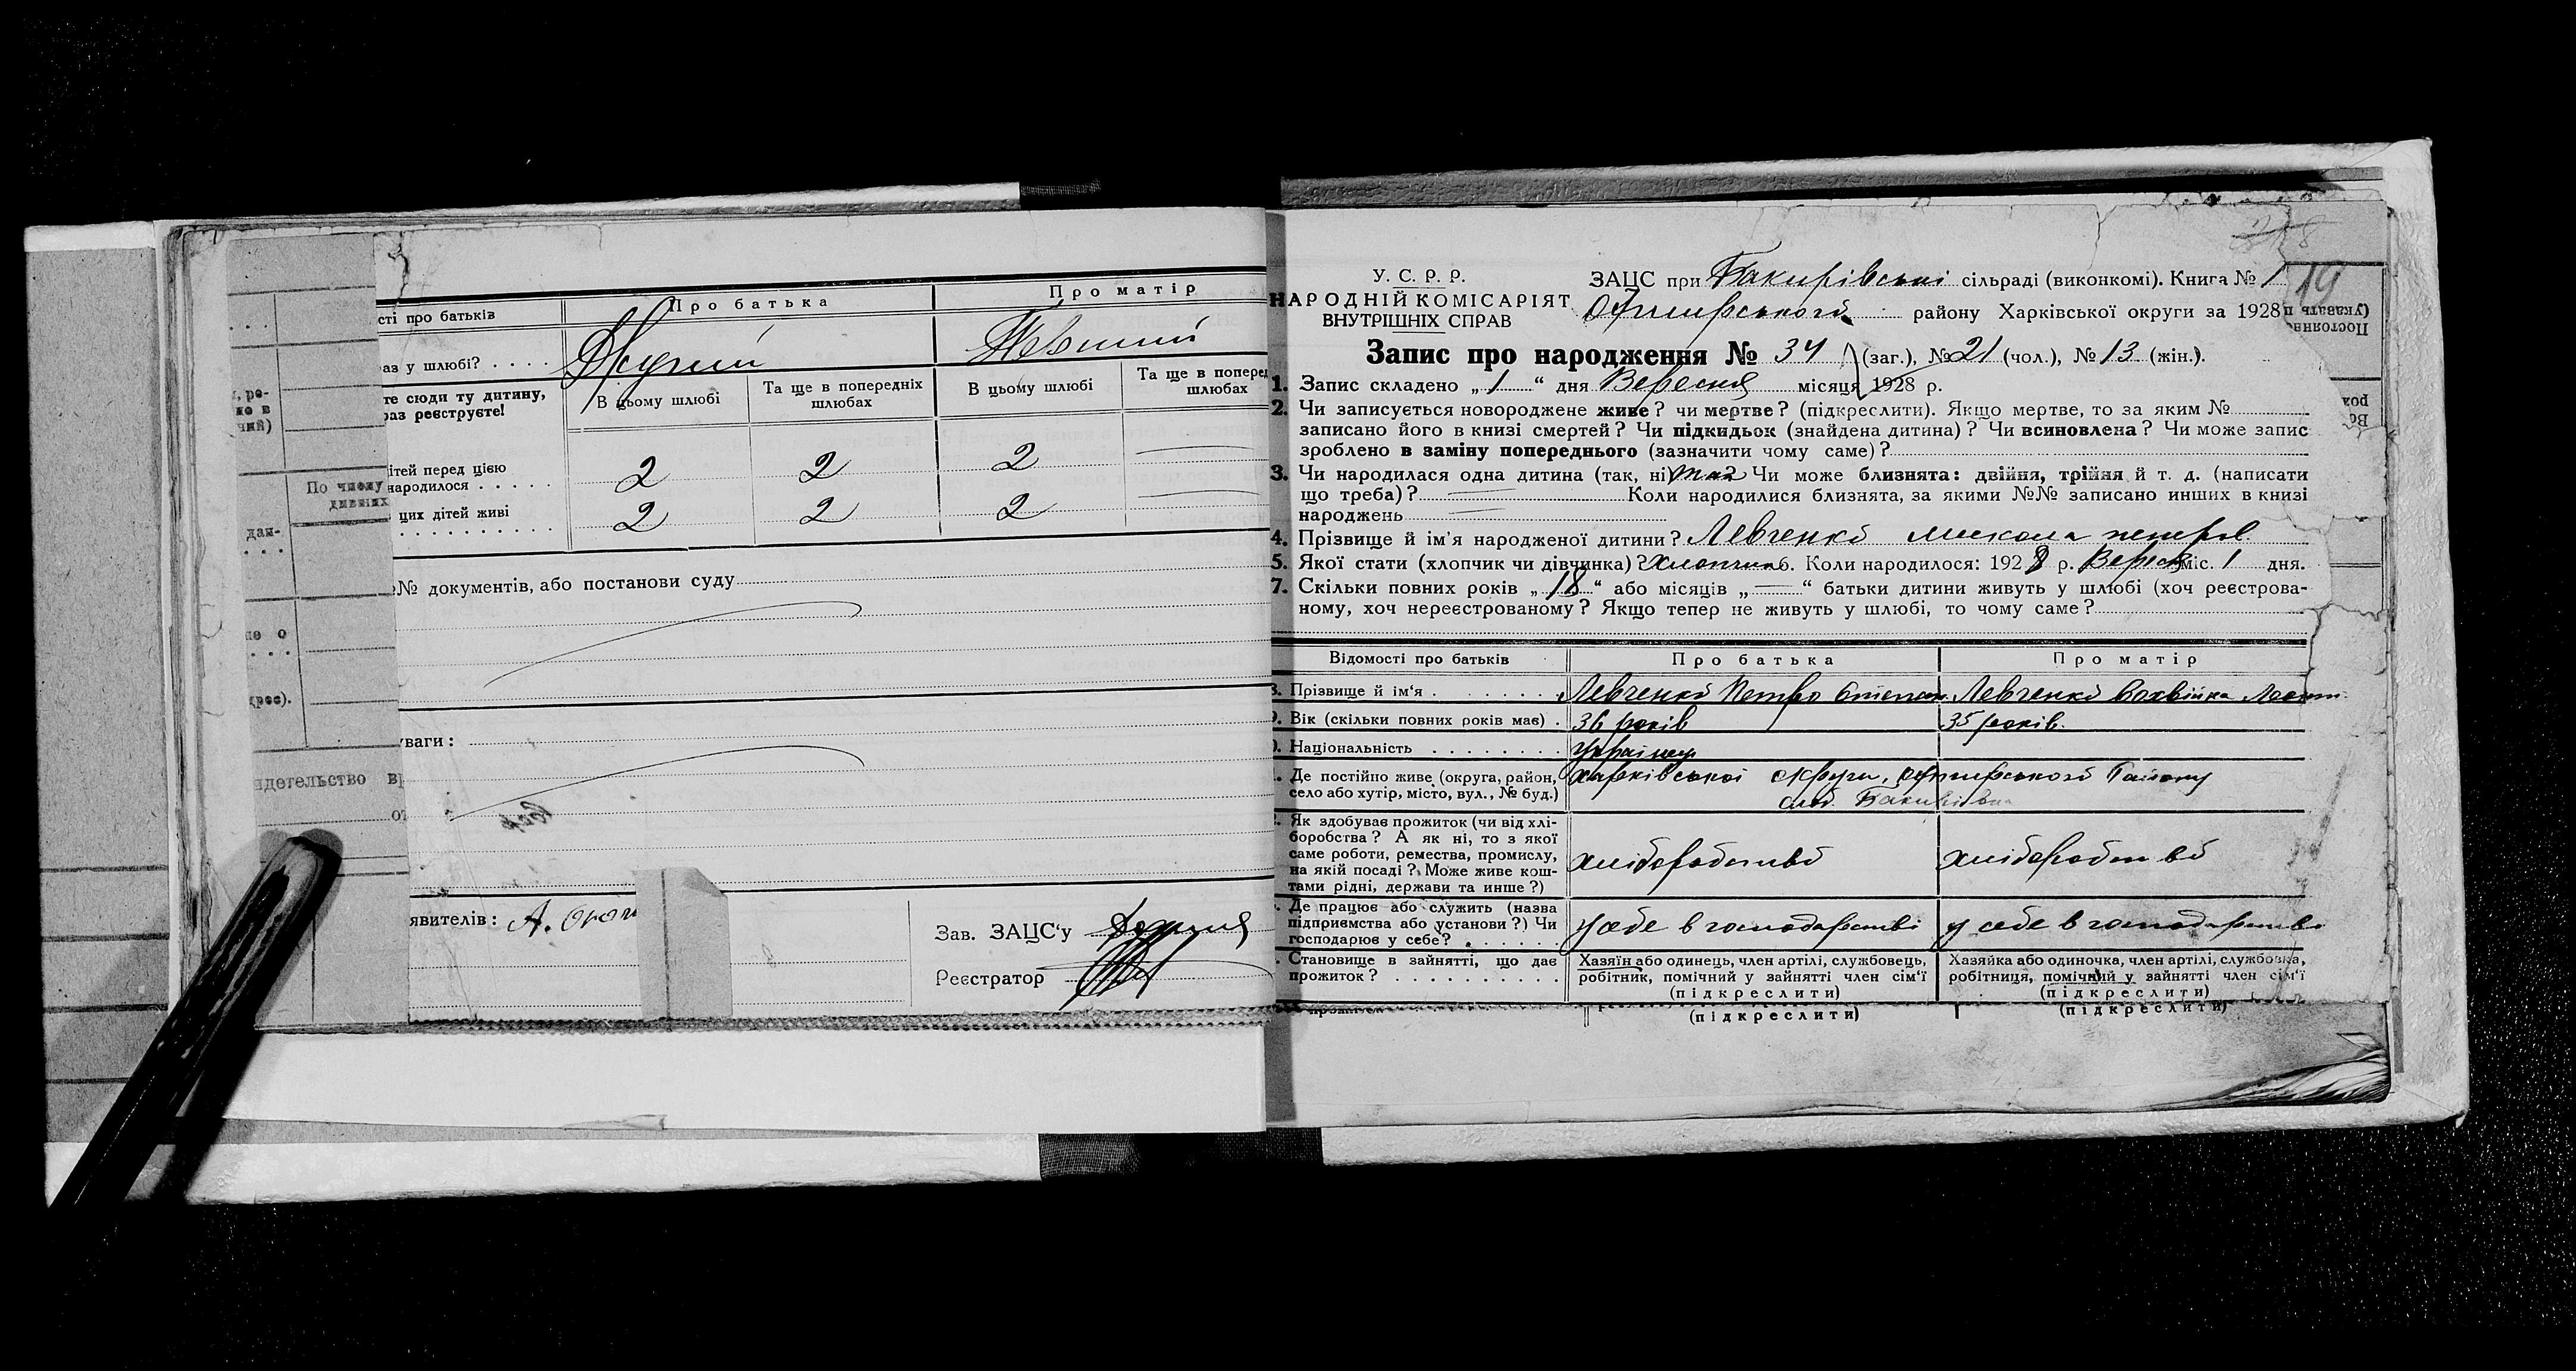 Про батька Про матір
сті про батьків
аз у шлюбі? . . . . Другий Первший
те сюди ту дитину,
раз реєструєте!
В цьому шлюбі Та ще в попередніх шлюбах В цьому шлюбі Та ще в поперед шлюбах
ітей перед цією
народилося . . . . . 2 2 2 —
цих дітей живі
. . . . . . . . . . 2 2 2 —
№ документів, або постанови суду
уваги:
явителів: А.
Зав. ЗАЦС'у
Реєстратор
По числу
дан-
ое о
дрес).
идетельство
У. С. Р. Р.
НАРОДНІЙ КОМІСАРІЯТ
ВНУТРІШНІХ СПРАВ
ЗАЦС при Бакирівські сільраді (виконкомі). Книга № 1
Охтирського району Харківської округи за 1928
19
(указать п
Постоянн
Запис про народження № 34 (заг.), № 21 (чол.), № 13 (жін.).
1. Запис складено „1“ дня Вересня місяця 1928 р.
2. Чи записується новороджене живе? чи мертве? (підкреслити). Якщо мертве, то за яким №
записано його в книзі смертей? Чи підкидьок (знайдена дитина)? Чи всиновлена? Чи може запис
зроблено в заміну попереднього (зазначити чому саме)?
3. Чи народилася одна дитина (так, ні) так Чи може близнята: двійня, трійня й т. д. (написати
що треба)? — Коли народилися близнята, за якими №№ записано инших в книзі
народжень —
4. Прізвище й ім'я народженої дитини? Левченко микола петров
5. Якої стати (хлопчик чи дівчинка)? Хлопчик 6. Коли народилося: 1928 р. Вересня міс. 1 дня.
7. Скільки повних років „18“ або місяців „—“ батьки дитини живуть у шлюбі (хоч реєстрова-
ному, хоч нереєстрованому? Якщо тепер не живуть у шлюбі, то чому саме?
Відомості про батьків Про батька Про матір
8. Прізвище й ім'я . . . . . . . Левченко Петро Степан. Левченко
9. Вік (скільки повних років має) . 36 років 35 років.
Національність . . . . . . . . Українец
Де постійно живе (округа, район,
село або хутір, місто, вул., № буд.)
Харківської округи, Охтирського Району
слоб. Бакирівка
Як здобуває прожиток (чи від хлі-
боробства? А як ні, то з якої
саме роботи, ремества, промислу,
на якій посаді? Може живе кош-
тами рідні, держави та инше?)
хліборобство хліборобство
Де працює або служить (назва
підприємства або установи?) Чи
господарює у себе? . . . . . .
у себе в господарстві у себе в господарстві
Становище в зайнятті, що дає
прожиток? . . . . . . . . .
Хазяїн або одинець, член артілі, службовець,
робітник, помічний у зайнятті член сім'ї
(підкреслити)
Хазяйка або одиночка, член артілі, службовка,
робітниця, помічний у зайнятті член сім'ї
(підкреслити)
(підкреслити) (підкреслити)